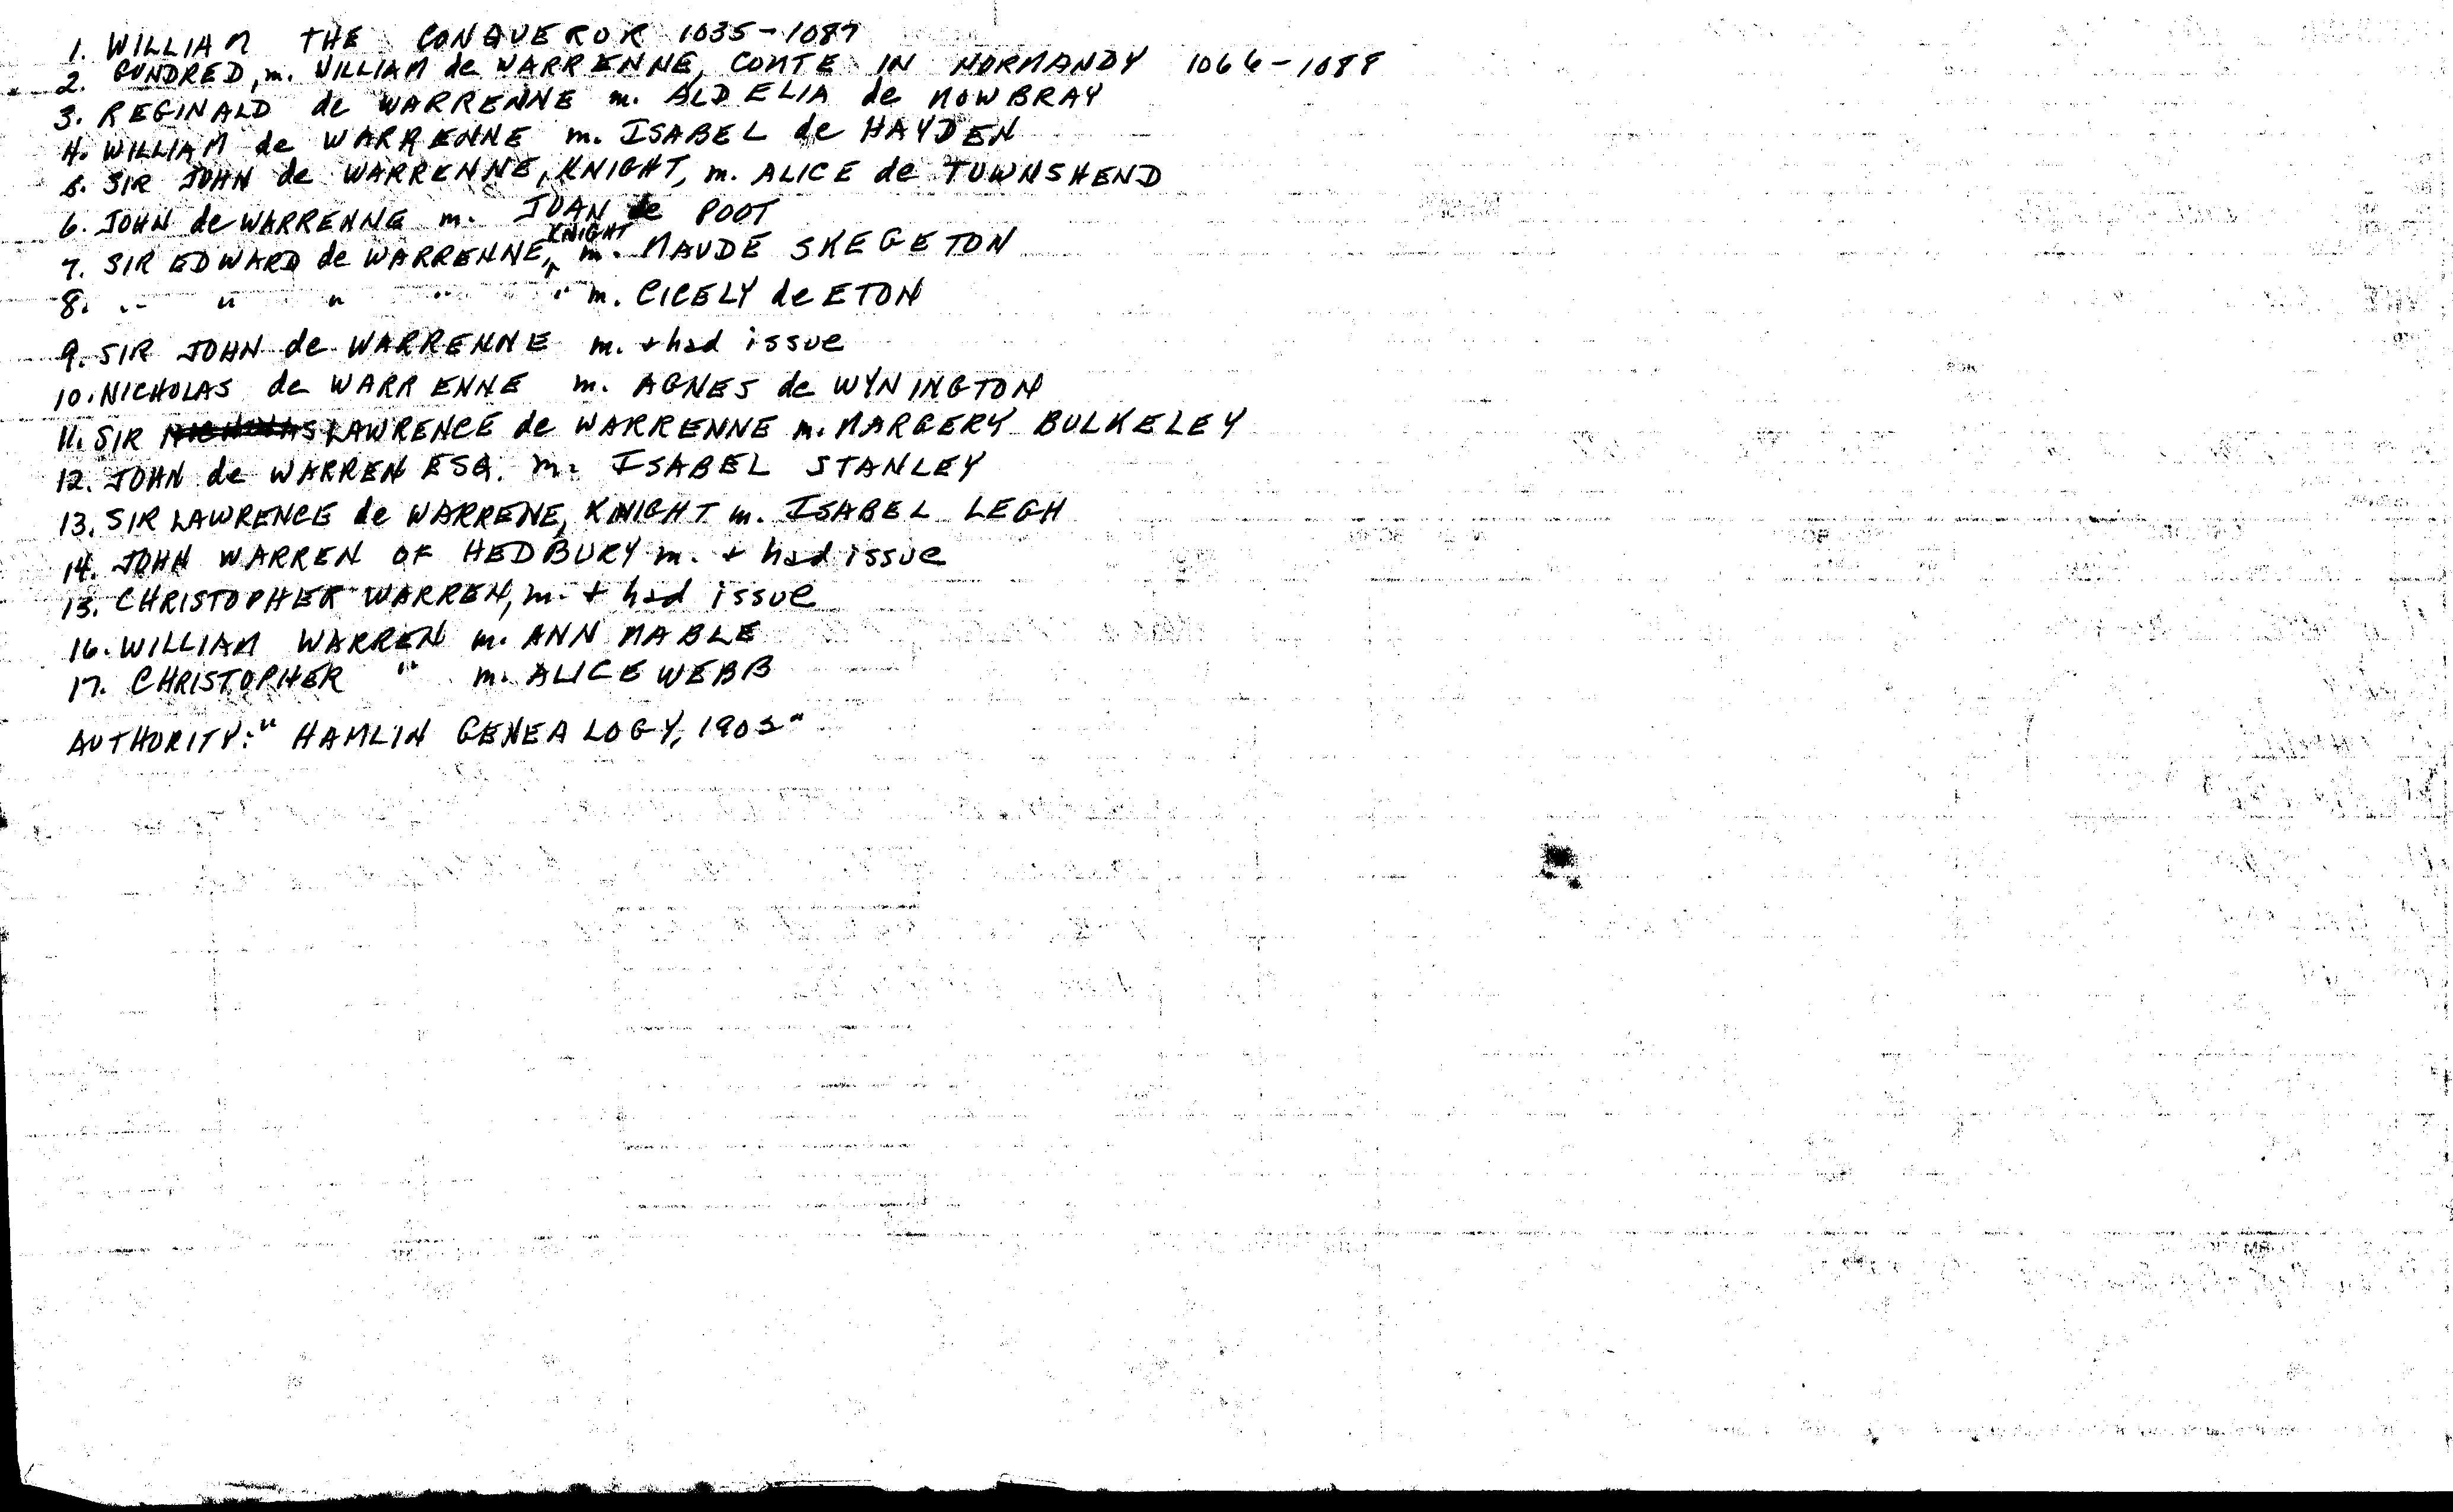 1. WILLIAM THE CONQUEROR 1035-1087
2. GUNDRED, m. WILLIAM de WARRENNE, COMTE IN NORMANDY 1066-1088
3. REGINALD de WARRENNE m. ALDELIA de MOWBRAY
4. WILLIAM de WARRENNE m. ISABEL de HAYDEN
5. SIR JOHN de WARRENNE, KNIGHT, m. ALICE de TOWNSHEND
6. JOHN de WARRENNE m. JOAN de POOT
7. SIR EDWARD de WARRENNE, KNIGHT m. MAUDE SKEGETON
8. " " " " " m. CICELY de ETON
9. SIR JOHN de WARRENNE m. + had issue
10. NICHOLAS de WARRENNE m. AGNES de WYNINGTON
11. SIR LAWRENCE de WARRENNE m. MARGERY BULKELEY
12. JOHN de WARREN ESQ. m. ISABEL STANLEY
13. SIR LAWRENCE de WARRENE, KNIGHT m. ISABEL LEGH
14. JOHN WARREN OF HEDBURY m. + had issue
15. CHRISTOPHER WARREN, m. + had issue
16. WILLIAM WARREN m. ANN MABLE
17. CHRISTOPHER " m. ALICE WEBB
AUTHORITY: "HAMLIN GENEALOGY,